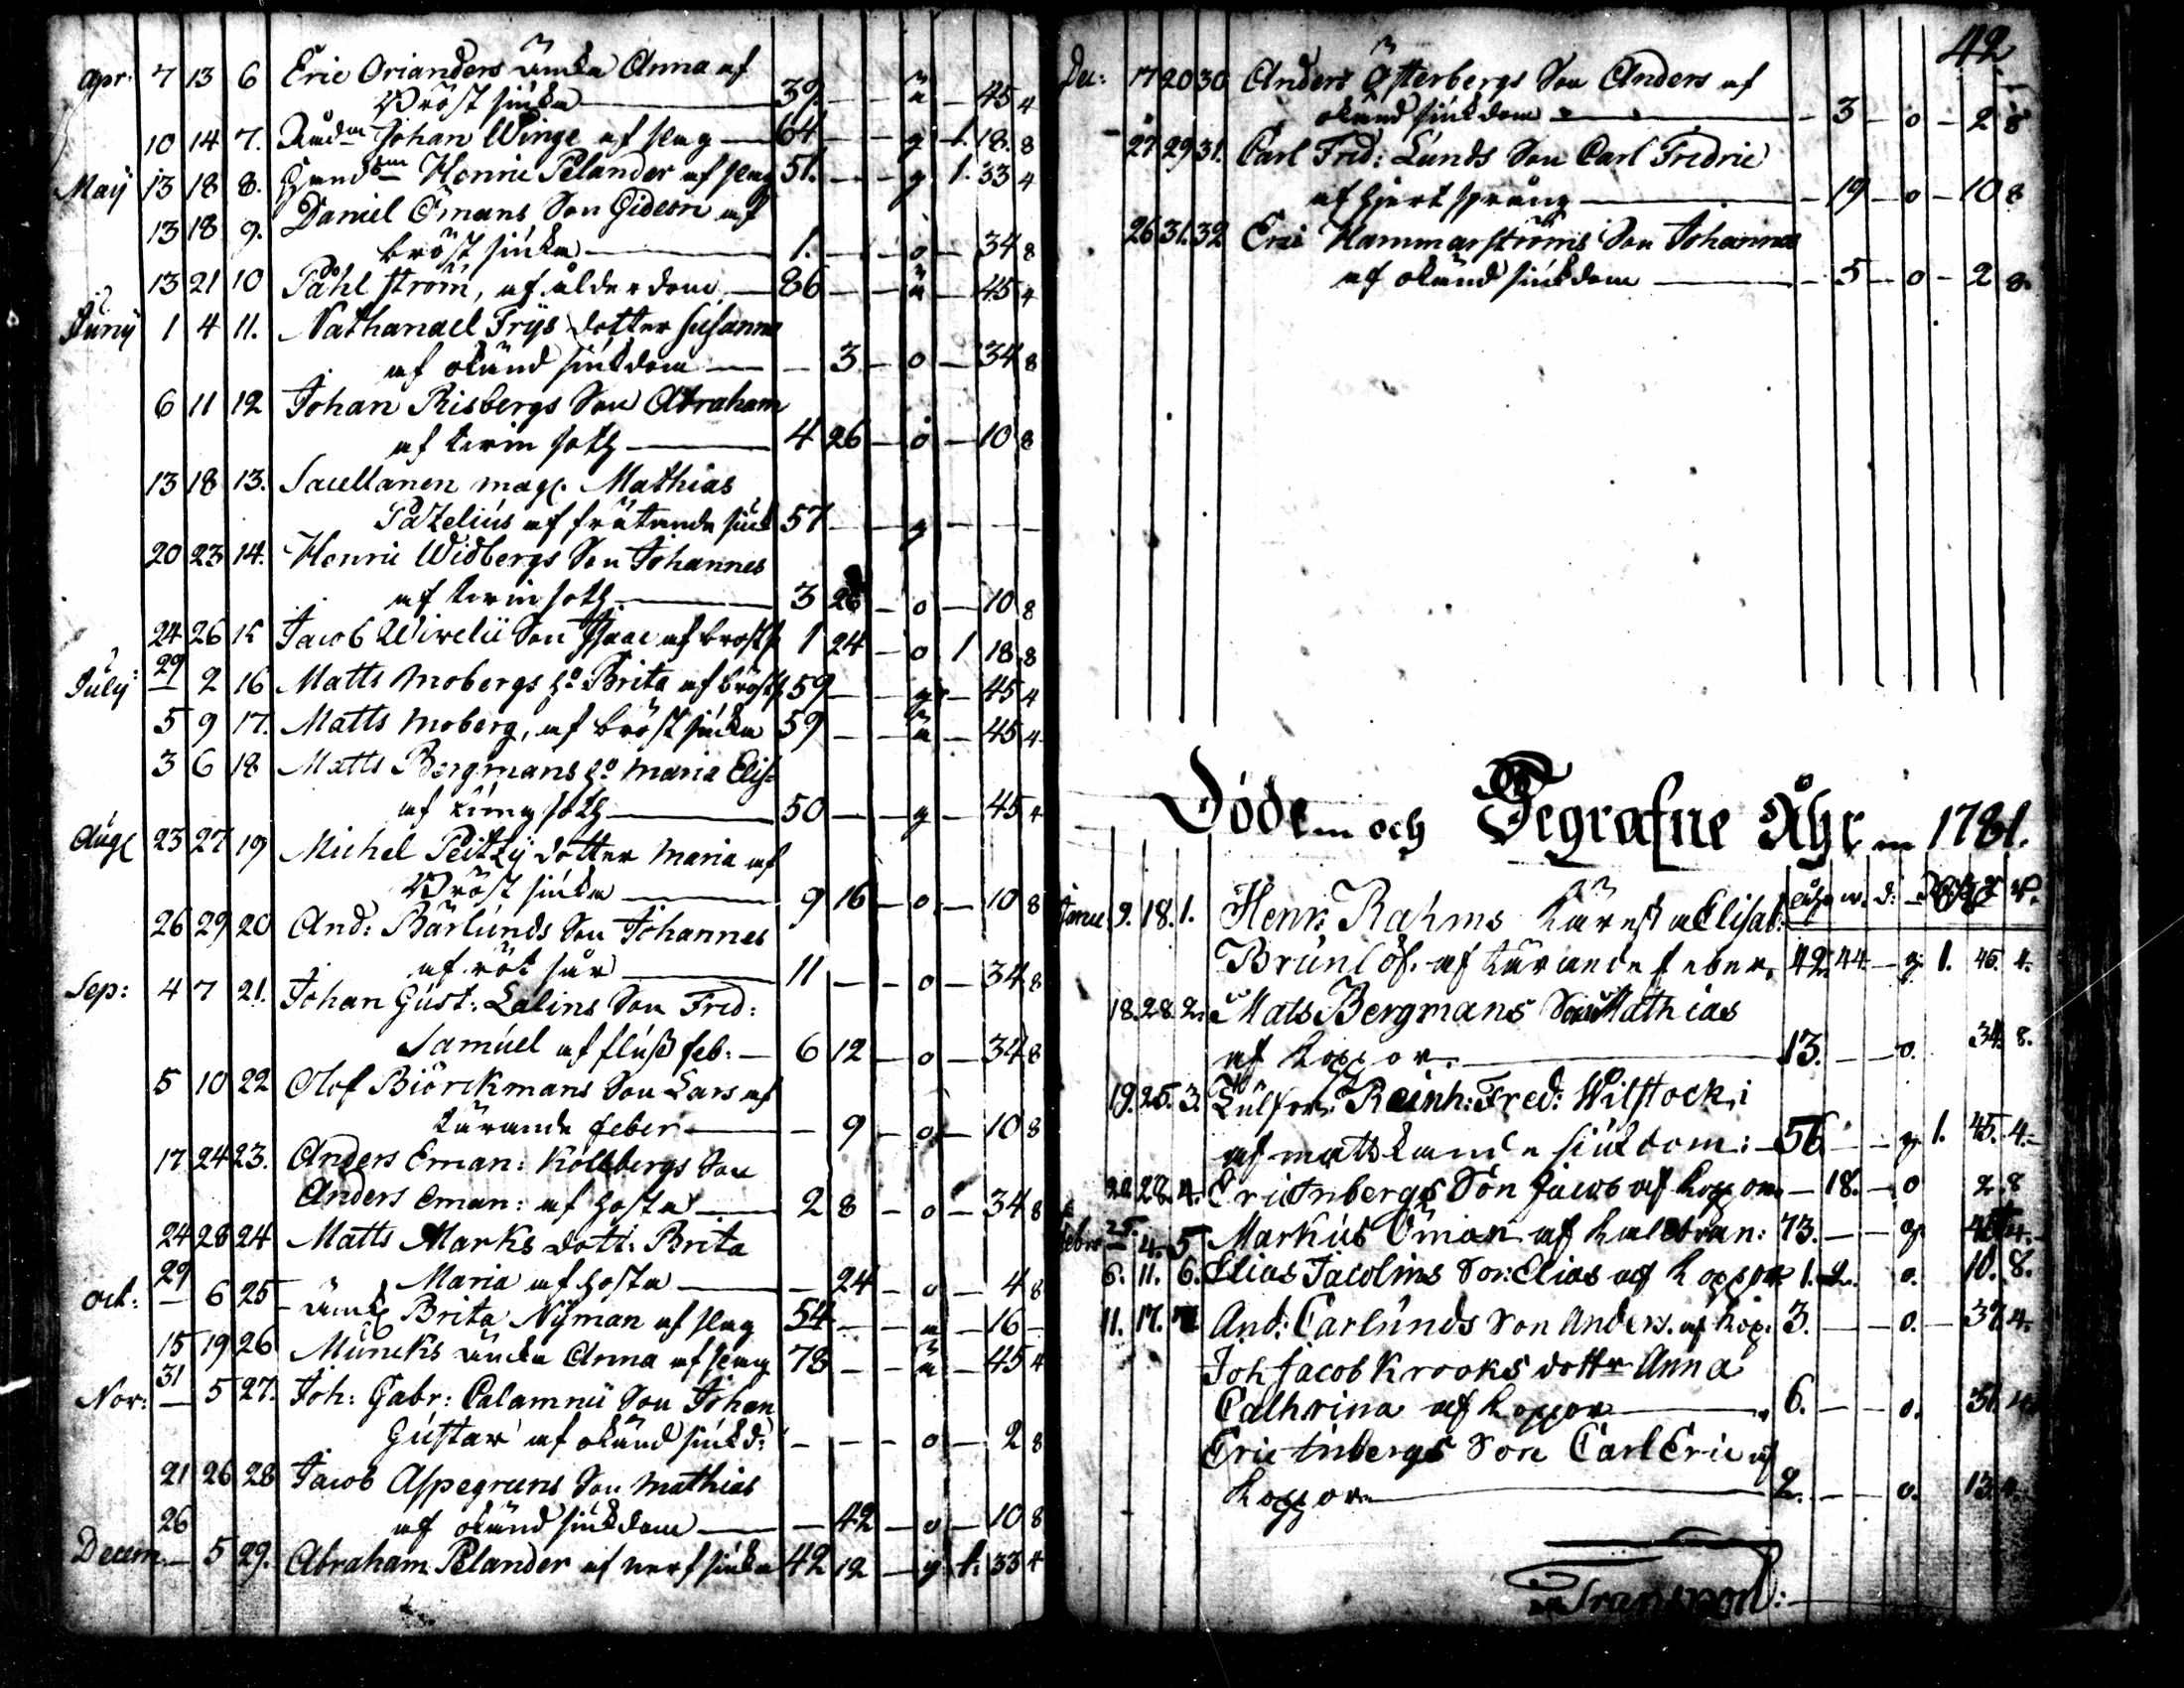 Apr: 7 13 6 Eric Orianders änka Anna af
Bröst siuka — 39. — — ä — 45 4
10 14 7. Rådm Johan Winge af slag — 64 — — g 1. 18. 8
Maÿ 13 18 8. Handm Henric Pelander af slag 51. — — g. 1. 33 4
13 18 9. Daniel Ömans Son Gideon af
bröst siuka — 1. — — o — 34 8
13 21 10 Påhl ström, af ålderdom — 86 — — ä — 45 4
Junÿ 1 4 11. Nathanael Frÿs dotter Susanna
af okänd siukdom — — 3 — o — 34 8
6 11 12 Johan Risbergs Son Abraham
af twin soth — 4 26 — o — 10 8
13 18 13. Sacellanen mag. Mathias
Pazelius af frätande siuk 57 — — g — — —
20 23 14. Henric Widbergs Son Johannes
af twin soth — 3 26 — o — 10 8
24 26 15 Jacob Wirelii Son Isaac af bröst 1 24 — o 1 18 8
July: 29 2 16 Matts Mobergs ho Brita af bröst 59 — — g — 45 4
5 9 17. Matts Moberg, af bröst siuka 59 — — ä — 45 4
3 6 18 Matts Bergmans ho Maria Elis:
af lung soth — 50 — — g — 45 4
Aug 23 27 19 Michel Peitzÿ dotter Maria af
Bröst siuka — 9 16 — o — 10 8
26 29 20 And: Bärlunds Son Johannes
af röt sår — 11 — — o — 34 8
Sep: 4 7 21. Johan Gust: Lalins Son Fred:
Samuel af fluß feb: — 6 12 — o — 34 8
5 10 22 Olof Biörckmans Son Lars af
tärande feber — — 9 — o — 10 8
17 24 23. Anders Eman: Kollbergs Son
Anders Eman: af hosta — 2 8 — o — 34 8
24 28 24 Matts Marks dott: Brita
Maria af hosta — — 24 — o — 4 8
Oct: 29 6 25 änk Brita Nÿman af slag 54 — — ä — 16 —
15 19 26 Muncks änka Anna af slag 78 — — ä — 45 4
Nov: 31 5 27. Joh: Gabr: Calamnii Son Johan
Gustav af okänd siukd: — — — o — 2 8
21 26 28 Jacob Aspegrens Son Mathias
af okänd siukdom — — 42 — o — 10 8
Decem 26 5 29. Abraham Pelander af nerf siuka 42 12 — g 1. 33 4
42
Dec: 17 20 30 Anders Österbergs Son Anders af
okänd siukdom — — 3 — o — 2 8
27 29 31. Carl Fred: Lunds Son Carl Fredric
af hjert språng — — 19 — o — 10 8
26 31. 32 Eric Hammarströms Son Johannes
af okänd siukdom — — 5 — o — 2 8.
Döde och Begrafne Åhr 1781.
9. 18. 1. Henr. Rahms Elisab:
Brunlöf. af tärande feber. 42. 44. — g. 1. 45. 4.
18. 28. 2. Mats Bergmans Son Mathias
af Koppor. — 13. — — o. 34. 8.
19. 25. 3. Reinh: Fred: Wilstock,
siukdom: — 56 — — g. 1. 45. 4.
28. 4. Eric Enbergs Son Jacob af Koppor — 18. — o 2. 8
Febr: 25. 4. 5 Markus Öman af kalebran: 73. — — g.
6. 11. 6. Elias Jacolins Son Elias af Koppor 1. — o. 10. 8.
11. 17. 7. And: Carlunds Son Anders. af Kop. 3. — — o. — 37. 4.
Joh Jacob Krooks dotter Anna
Cathrina af Koppor — 6. — — o.
Eric Enbergs Son Carl Eric af
Koppor — 2. — — o. 13. 4.
Transport: